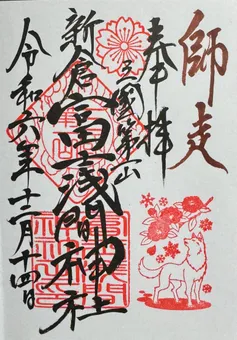 師走
奉拝
三國第一山
新倉富士浅間神社
令和六年十二月十四日